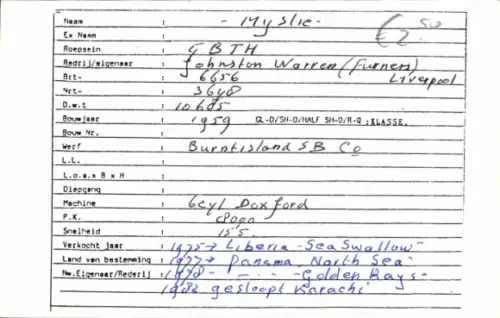 Naam : - Mystic - € 2.50
Ex Naam :
Roepsein : G B T H
Rederij/eigenaar : Johnston Warren (Furness) Liverpool
Brt- : 6656
Nrt- : 3648
D.w.t : 10685
Bouwjaar : 1959 CL-D/SH-D/HALF SH-D/R-Q :KLASSE.
Bouw Nr. :
Werf : Burntisland S B Co
L.L. :
L.o.a.x B x H :
Diepgang :
Machine : 6cyl Doxford
P.K. :
Snelheid : 15.5
Verkocht jaar : 1975→ Liberia - Sea Swallow"
Land van bestemming : 1977→ Panama. North Sea"
Nw.Eigenaar/Rederij : 1978- - - - Golden Rays-
1982 gesloopt Karachi